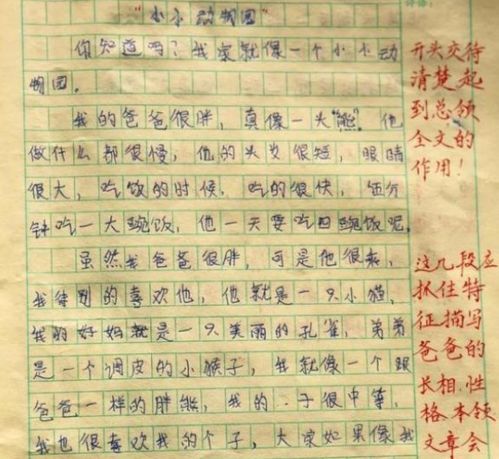 “小小动物园”
你知道吗？我家就像一个小小动
物园。
我的爸爸很胖，真像一头“熊”。他
做什么都很慢，他的头发很短，眼睛
很大，吃饭的时候，吃的很快，伍分
钟吃一大碗饭，他一天要吃四碗饭呢，
虽然我爸爸很胖，可是他很亲，
我特别的喜欢他，他就是一只小猫，
我的好妈就是一只美丽的孔雀，弟弟
是一个调皮的小猴子，我就像一个跟
爸爸一样的胖熊，我的子很中等，
我也很喜欢我的个子，大家如果像我
开头交待
清楚，起
到总领
全文的
作用！
这几段应
抓住特
征描写
爸爸的
长相.性
格.本领
文章会